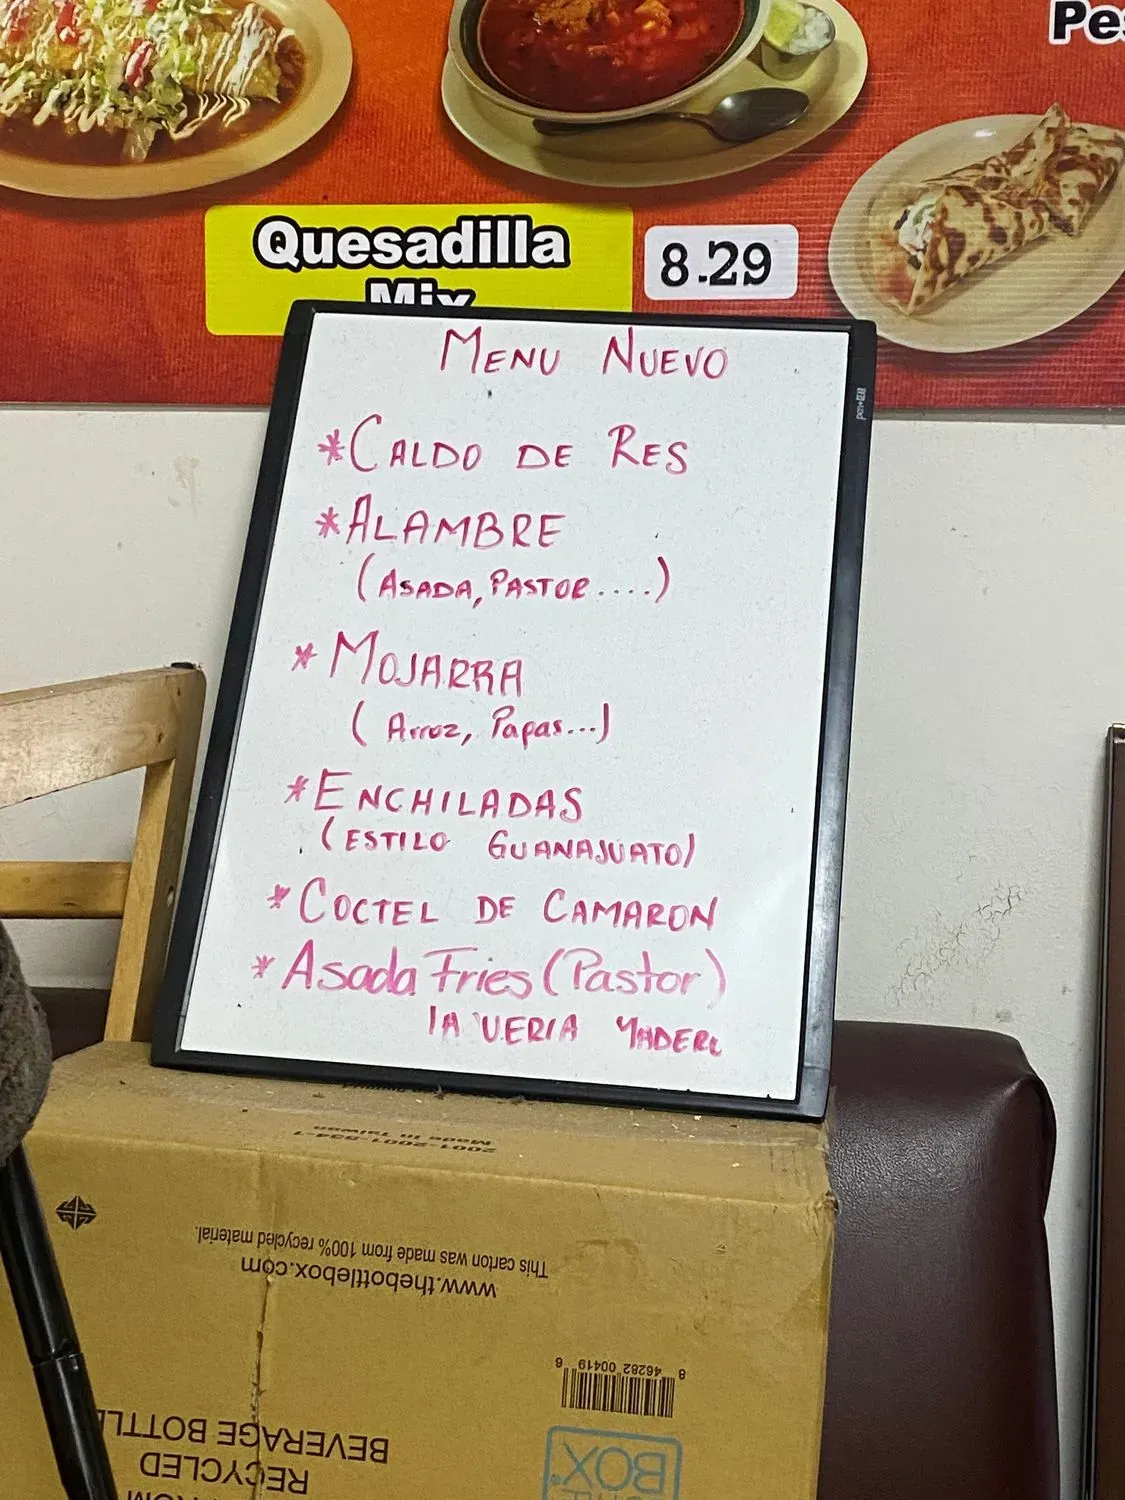 Pes
Quesadilla
Mix
8.29
MENU NUEVO
*CALDO DE RES
*ALAMBRE
(ASADA, PASTOR....)
*MOJARRA
(Arroz, Papas...)
*ENCHILADAS
(ESTILO GUANAJUATO)
*COCTEL DE CAMARON
*Asada Fries (Pastor)
pen+gear
2001-2001-534-1
Made in Taiwan
This carton was made from 100% recycled material.
www.thebottlebox.com
8 46282 00419 6
BEVERAGE BOTTLE
RECYCLED
BOX